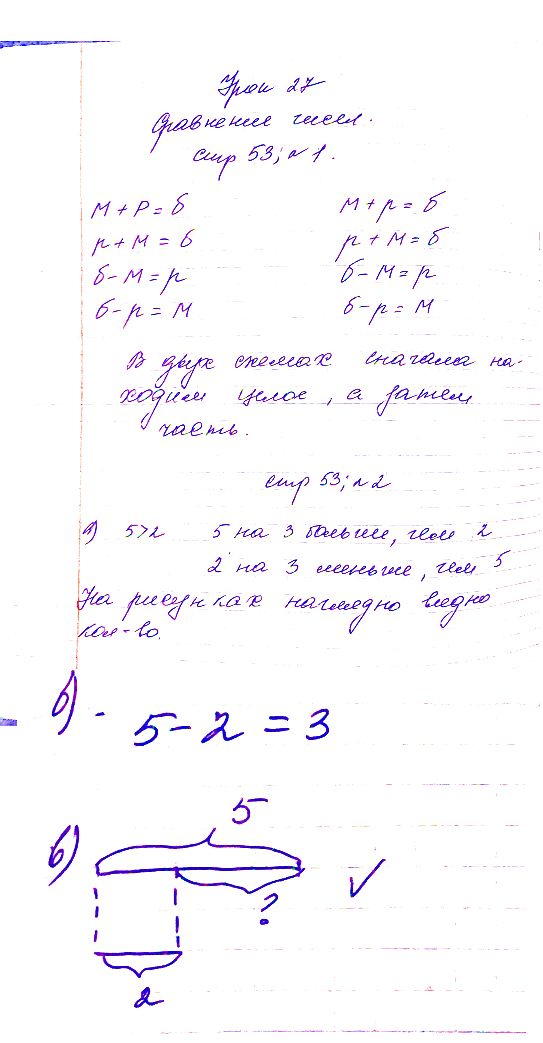 Урок 27
Сравнение чисел.
стр 53; №1.
М + Р = б М + р = б
р + М = б р + М = б
б - М = р б - М = р
б - р = М б - р = М
В двух схемах сначала на-
ходим целое, а затем
часть.
стр 53; №2
а) 5>2 5 на 3 больше, чем 2
2 на 3 меньше, чем 5
На рисунках наглядно видно
кол-во.
б) - 5 - 2 = 3
в)
5
?
2